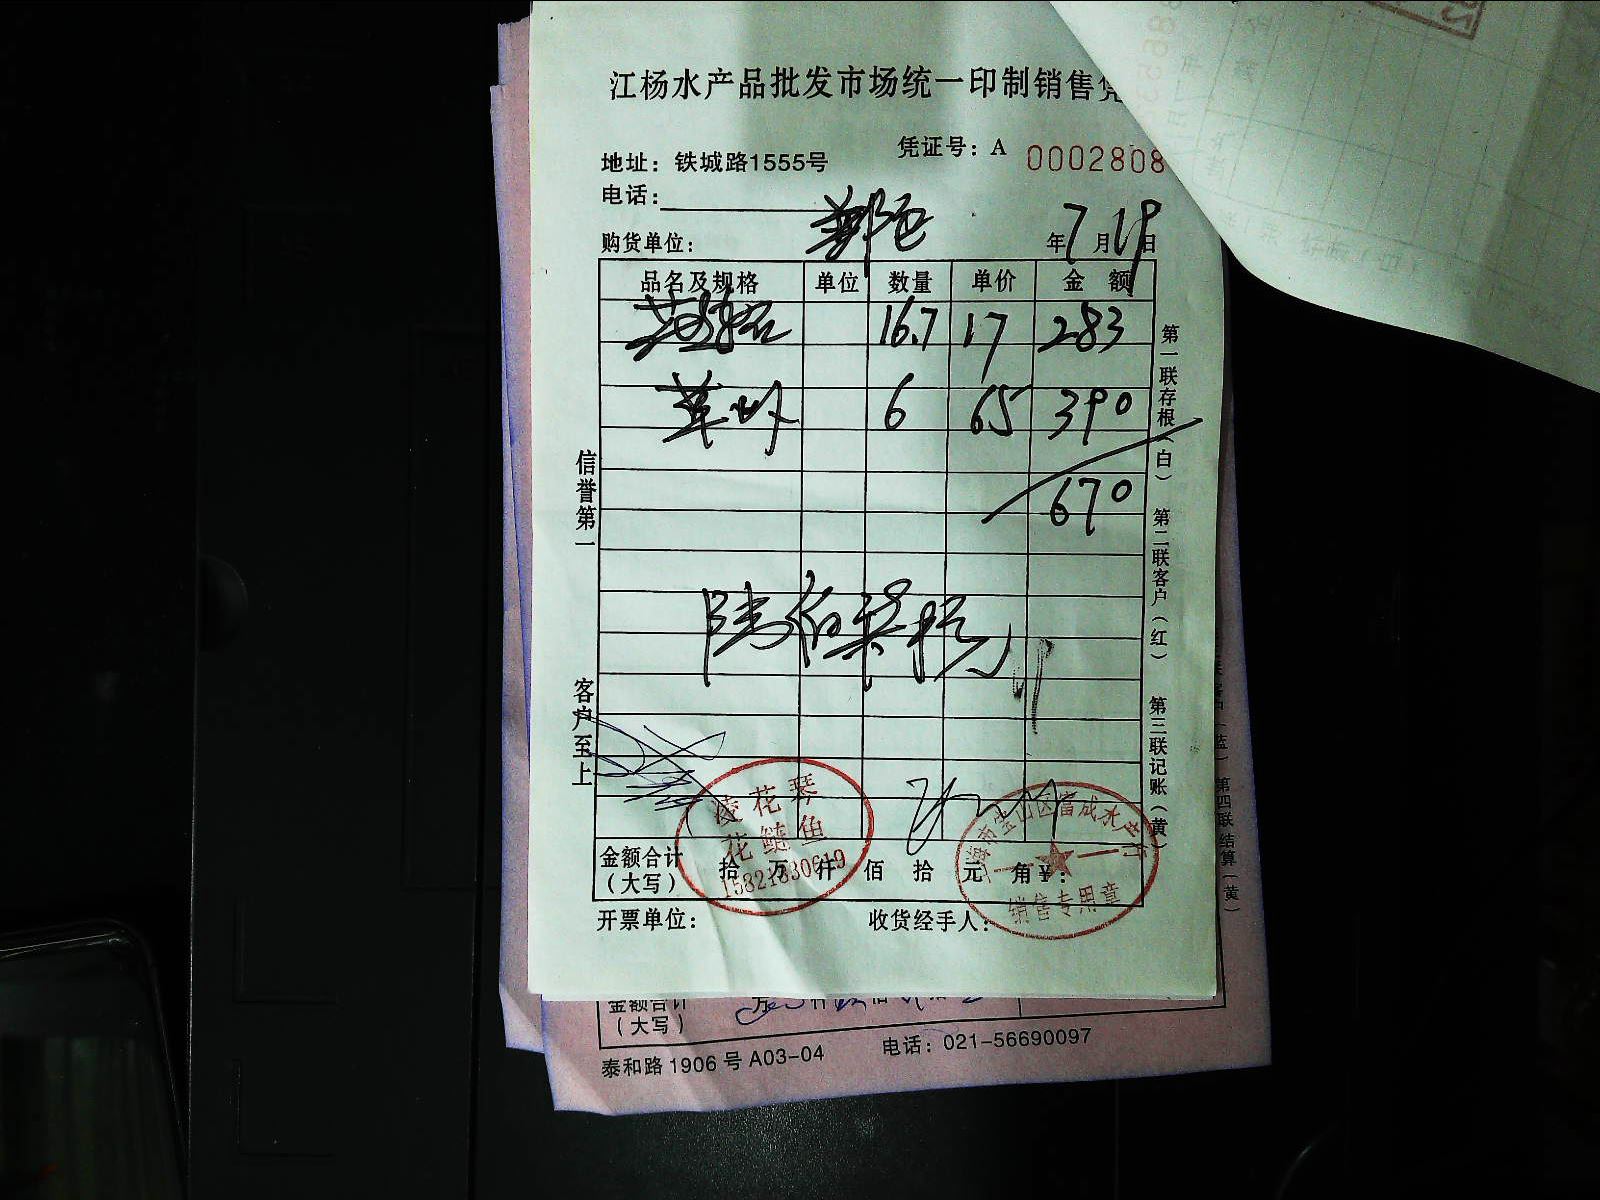 江杨水产品批发市场统一印制销售凭
凭证号：A 0002808
地址：铁城路1555号
电话：
购货单位： 年7月19日
品名及规格 单位 数量 单价 金额
16.7 17 283
6 65 390
670
陆佰柒拾元
信誉第一
客户至上
第一联存根（白） 第二联客户（红） 第三联记账（黄）
凌花琴
花鲢鱼
15821830619
上海市宝山区富成水产行
销售专用章
金额合计（大写） 拾 万 仟 佰 拾 元 角 ¥：
开票单位： 收货经手人：
第四联结算（黄）
金额合计（大写） 万 仟 佰 拾
泰和路1906号A03-04 电话：021-56690097